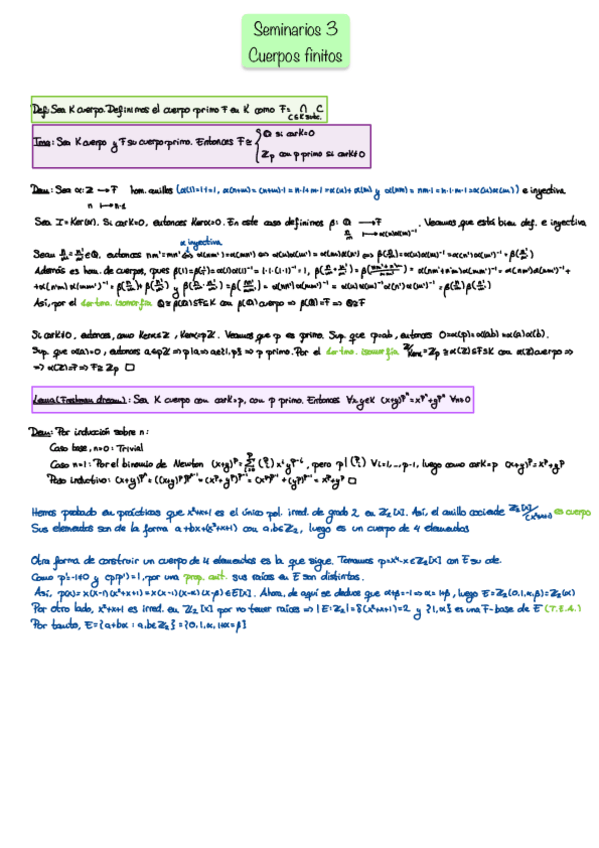 Seminarios 3
Cuerpos finitos
Def: Sea K cuerpo. Definimos el cuerpo primo F en K como F = ∩ C
C≤K subc.
Tma: Sea K cuerpo y F su cuerpo primo. Entonces F ≅ { Q si carK=0
Zp con p primo si carK≠0
Dem: Sea α: Z → F hom. anillos (α(1)=1, α(n+m)=(n+m)·1=n·1+m·1=α(n)+α(m) y α(nm)=nm·1=n·1·m·1=α(n)α(m)) e inyectiva
n ↦ n·1
Sea I=Ker(α). Si carK=0, entonces Kerα=0. En este caso definimos β: Q → F. Veamos que está bien def. e inyectiva
n/m ↦ α(n)α(m)⁻¹
α inyectiva
Sean n/m = n'/m' ∈ Q, entonces nm'=mn' ⇔ α(nm')=α(mn') ⇔ α(n)α(m')=α(m)α(n') ⇔ β(n/m)=α(n)α(m)⁻¹=α(n')α(m')⁻¹=β(n'/m')
Además es hom. de cuerpos, pues β(1)=β(1/1)=α(1)α(1)⁻¹=1·1·(1·1)⁻¹=1, β(n/m + n'/m')=β((nm'+n'm)/mm')=α(nm'+n'm)α(mm')⁻¹=α(nm')α(mm')⁻¹+
+α(n'm)α(mm')⁻¹=β(n/m)+β(n'/m') y β(n/m · n'/m')=β(nn'/mm')=α(nn')α(mm')⁻¹=α(n)α(m)⁻¹α(n')α(m')⁻¹=β(n/m)β(n'/m')
Así, por el 1er tma. isomorfía Q≅β(Q)≤F≤K con β(Q) cuerpo ⇒ β(Q)=F ⇒ Q≅F
Si carK≠0, entonces, como Kerα≤Z, Kerα=pZ. Veamos que p es primo. Sup. que p=ab, entonces 0=α(p)=α(ab)=α(a)α(b).
Sup. que α(a)=0, entonces a∈pZ ⇒ p|a ⇒ a∈{1,p} ⇒ p primo. Por el 1er tma. isomorfía Z/Kerα=Zp≅α(Z)≤F≤K con α(Z) cuerpo ⇒
⇒ α(Z)=F ⇒ F≅Zp □
Lema (Freshman dream): Sea K cuerpo con carK=p, con p primo. Entonces ∀x,y∈K (x+y)^pⁿ=x^pⁿ+y^pⁿ ∀n≥0
Dem: Por inducción sobre n:
Caso base, n=0: Trivial
Caso n=1: Por el binomio de Newton (x+y)^p=Σ(p i)x^i y^p-i, pero p|(p i) ∀i=1,...,p-1, luego como carK=p (x+y)^p=x^p+y^p
Paso inductivo: (x+y)^pⁿ=((x+y)^p)^pⁿ⁻¹=(x^p+y^p)^pⁿ⁻¹=(x^p)^pⁿ⁻¹+(y^p)^pⁿ⁻¹=x^pⁿ+y^pⁿ □
Hemos probado en prácticas que x²+x+1 es el único pol. irred. de grado 2 en Z₂[x]. Así, el anillo cociente Z₂[x]/(x²+x+1) es cuerpo
Sus elementos son de la forma a+bx+(x²+x+1) con a,b∈Z₂, luego es un cuerpo de 4 elementos
Otra forma de construir un cuerpo de 4 elementos es la que sigue. Tomamos p=x⁴-x∈Z₂[x] con E su cde.
Como p'=-1≠0 y (p,p')=1, por una prop. ant. sus raíces en E son distintas.
Así, p(x)=x(x-1)(x²+x+1)=x(x-1)(x-α)(x-β)∈E[x]. Ahora, de aquí se deduce que α+β=-1 ⇒ α=1+β, luego E=Z₂(0,1,α,β)=Z₂(α)
Por otro lado, x²+x+1 es irred. en Z₂[x] por no tener raíces ⇒ |E:Z₂|=δ(x²+x+1)=2 y {1,α} es una F-base de E (T.E.A.)
Por tanto, E={a+bα : a,b∈Z₂}={0,1,α,1+α=β}